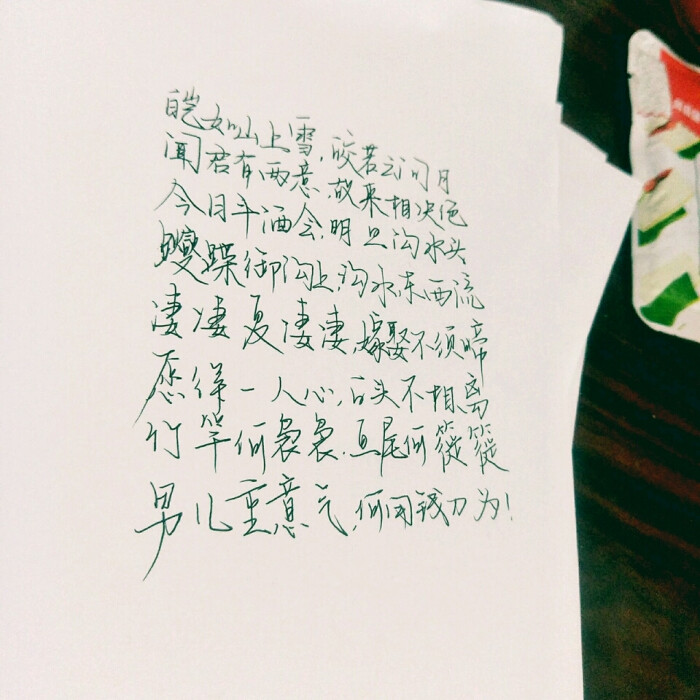 皑如山上雪,皎若云间月
闻君有两意,故来相决绝
今日斗酒会,明旦沟水头
躞蹀御沟上,沟水东西流
凄凄复凄凄,嫁娶不须啼
愿得一人心,白头不相离
竹竿何袅袅,鱼尾何簁簁
男儿重意气,何用钱刀为!